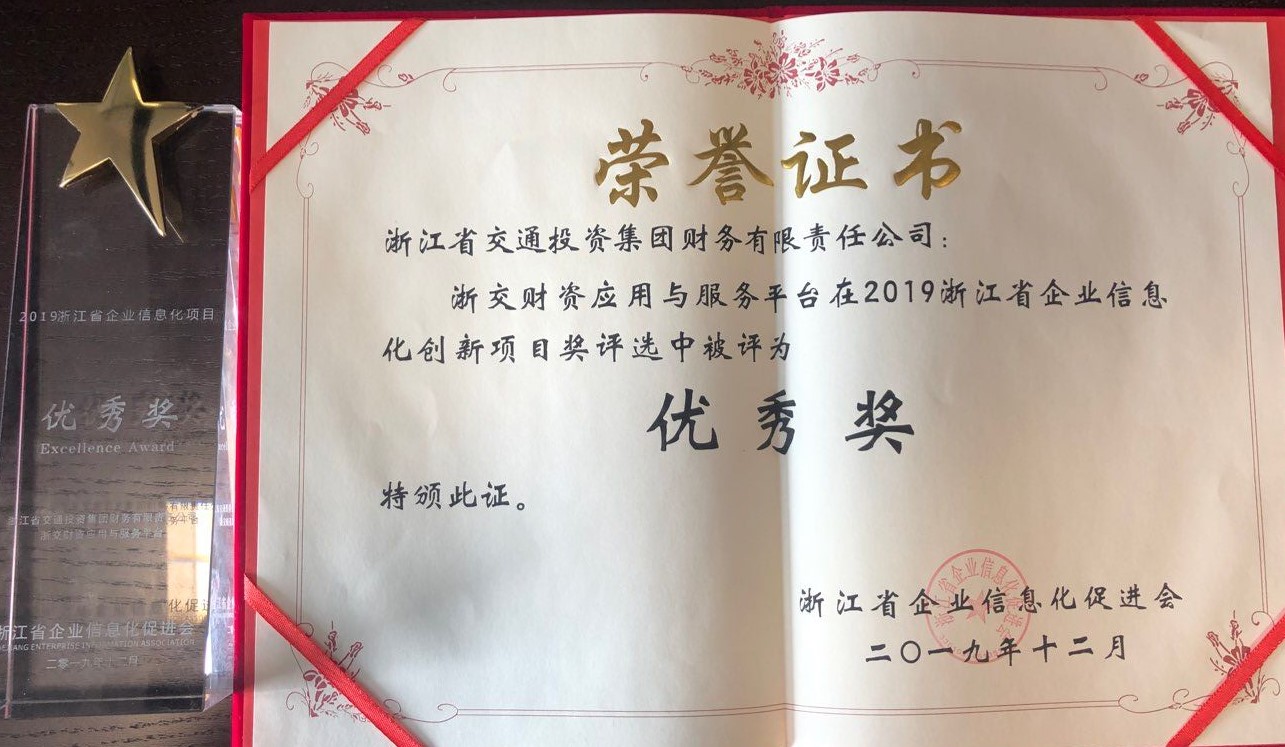 2019浙江省企业信息化项目
优秀奖
Excellence Award
浙江省交通投资集团财务有限责
浙交财资应用与服务平台
浙江省企业信息化促进会
ENTERPRISE INFORMATION ASSOCIATION
二零一九年十二月
荣誉证书
浙江省交通投资集团财务有限责任公司：
浙交财资应用与服务平台在2019浙江省企业信息
化创新项目奖评选中被评为
优秀奖
特颁此证。
浙江省企业信息化促进会
二〇一九年十二月